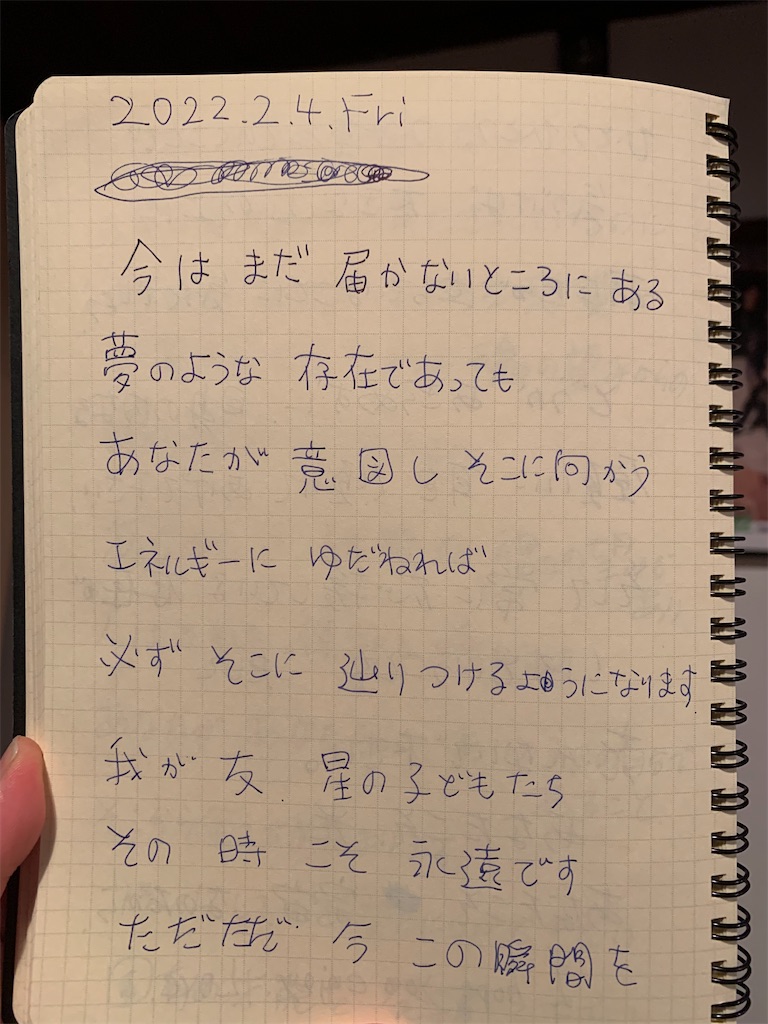 2022.2.4.Fri
今は まだ 届かないところに ある
夢のような 存在であっても
あなたが 意図し そこに向かう
エネルギーに ゆだねれば
必ず そこに 辿りつけるようになります
我が友. 星の子どもたち
その 時 こそ 永遠です
ただただ 今 この瞬間を